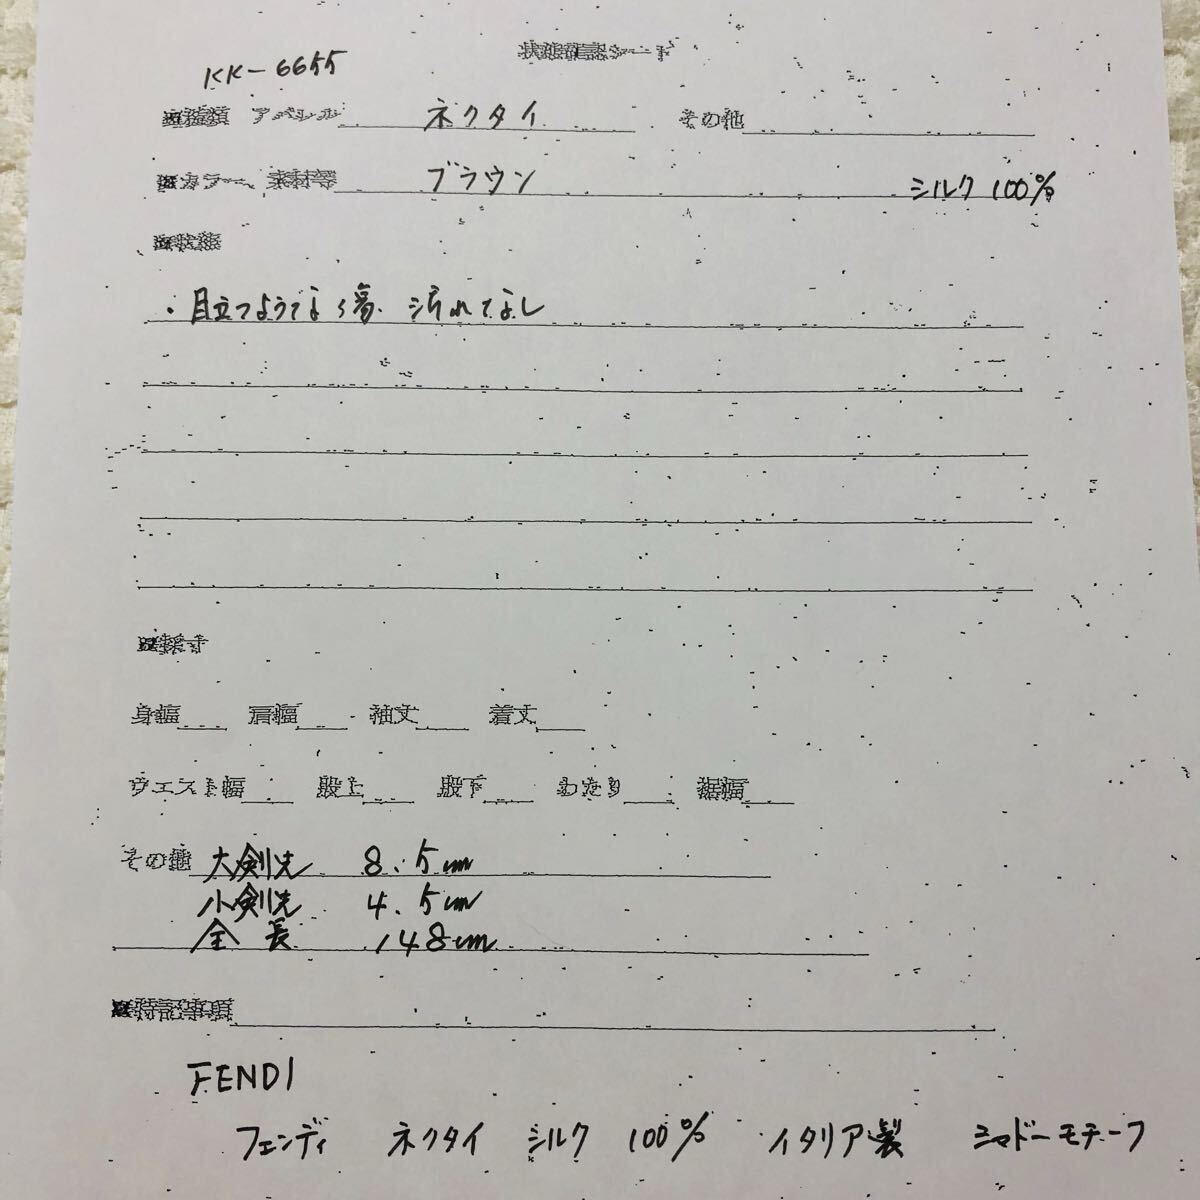 状態確認シート
KK-6655
■種類 アパレル ネクタイ その他
■カラー、素材等 ブラウン シルク 100%
■状態
・目立つような傷、汚れなし
■採寸
身幅 肩幅 袖丈 着丈
ウエスト幅 股上 股下 わたり 裾幅
その他 大剣先 8.5cm
小剣先 4.5cm
全長 148cm
■特記事項
FENDI
フェンディ ネクタイ シルク 100% イタリア製 シャドーモチーフ